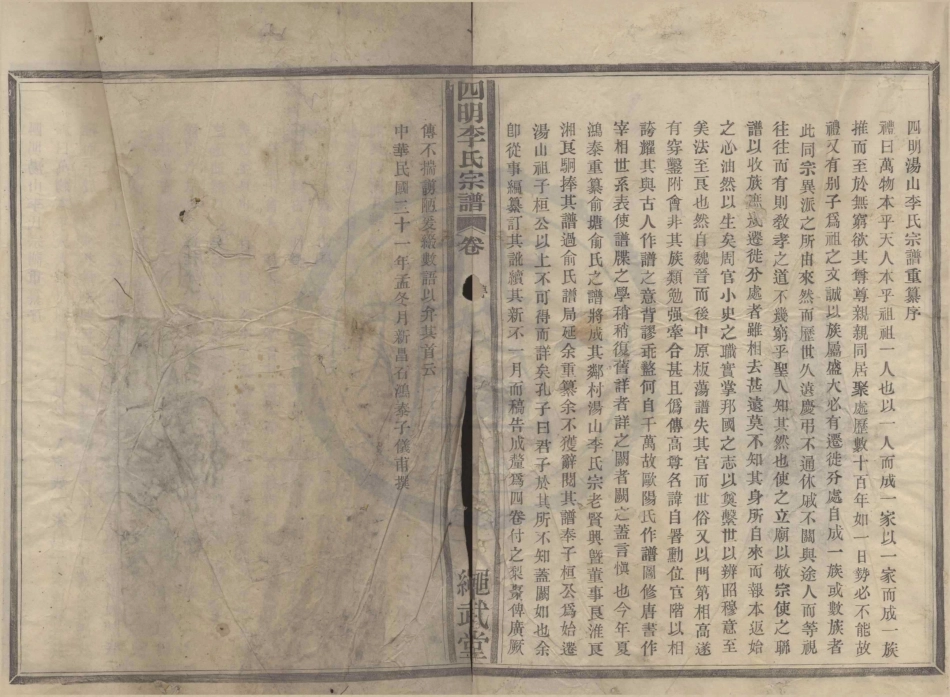 四明湯山李氏宗譜重纂序
禮曰萬物本乎天人本乎祖祖一人也以一人而成一家以一家而成一族
推而至於無窮欲其尊尊親親同居聚處歷數十百年如一日勢必不能故
禮又有别子爲祖之文誠以族屬盛大必有遷徙分處自成一族或數族者
此同宗異派之所由來然而歷世久遠慶弔不通休戚不關與途人而等視
往往而有則敎孝之道不幾窮乎聖人知其然也使之立廟以敬宗使之聯
譜以收族庶幾遷徙分處者雖相去甚遠莫不知其身所自來而報本返始
之心油然以生矣周官小史之職實掌邦國之志以奠繫世以辨昭穆意至
美法至良也然自魏晉而後中原板蕩譜失其官而世俗又以門第相高遂
有穿鑿附會非其族類勉强牽合甚且僞傳高尊名諱自署勳位官階以相
誇耀其與古人作譜之意背謬乖盭何自千萬故歐陽氏作譜圖修唐書作
宰相世系表使譜牒之學稍稍復舊詳者詳之闕者闕之蓋言愼也今年夏
鴻泰重纂俞塘俞氏之譜將成其鄰村湯山李氏宗老賢興曁董事良淮良
湘良駉捧其譜過俞氏譜局延余重纂余不獲辭閱其譜奉子桓公爲始遷
湯山祖子桓公以上不可得而詳矣孔子曰君子於其所不知蓋闕如也余
卽從事編纂訂其訛續其新不一月而稿告成釐爲四卷付之梨棗俾廣厥
四明李氏宗譜
卷
繩武堂
傳不揣譾陋爰綴數語以介其首云
中華民國二十一年孟冬月新昌石鴻泰子儀甫撰